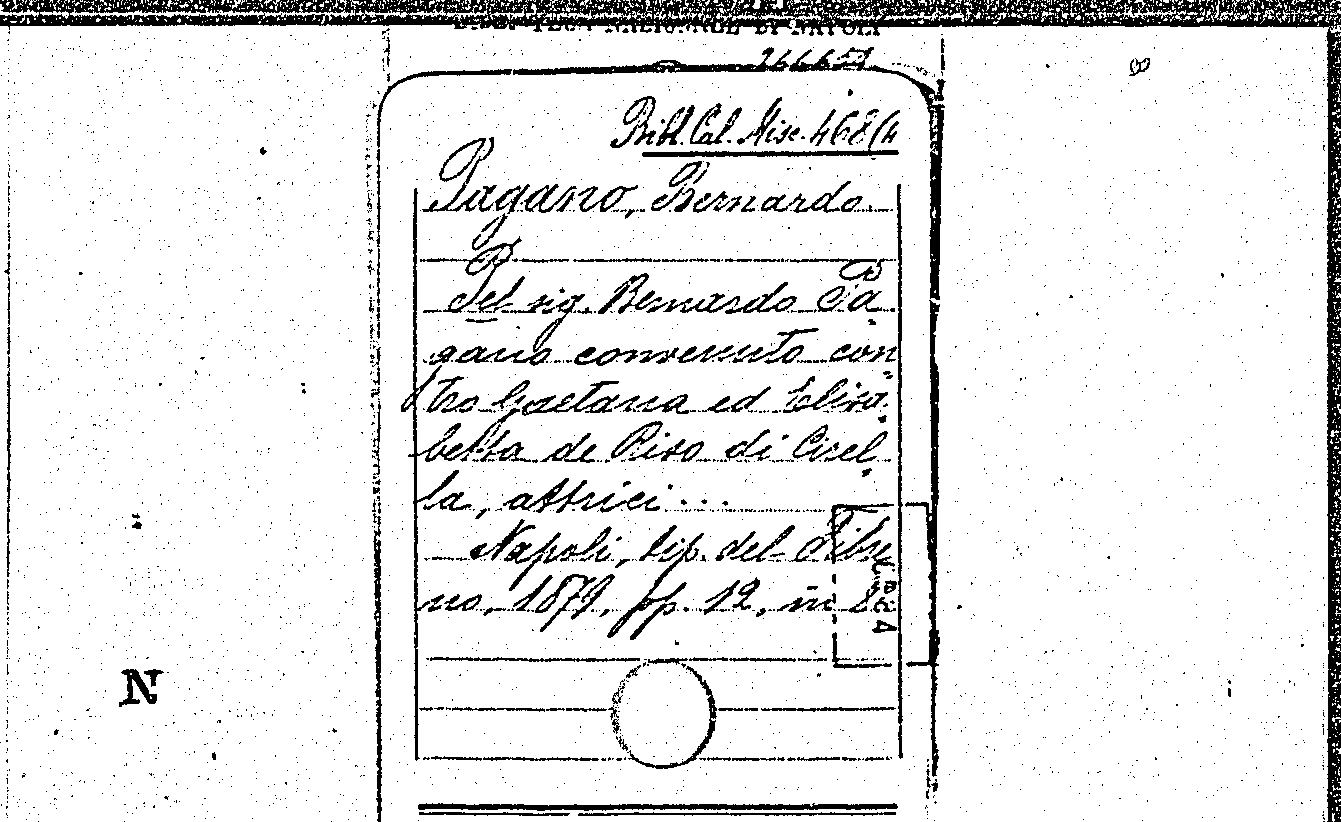 BIBLIOTECA NAZIONALE DI NAPOLI
266651
Bibl. Cal. Misc. 468(4
Pagano, Bernardo.
Pel sig. Bernardo Pa
gano convenuto con
tro Gaetana ed Elisa
betta de Riso di Cirel
la, attrici...
Napoli, tip. del Fibre
no, 1879, pp. 12, in 8°
N